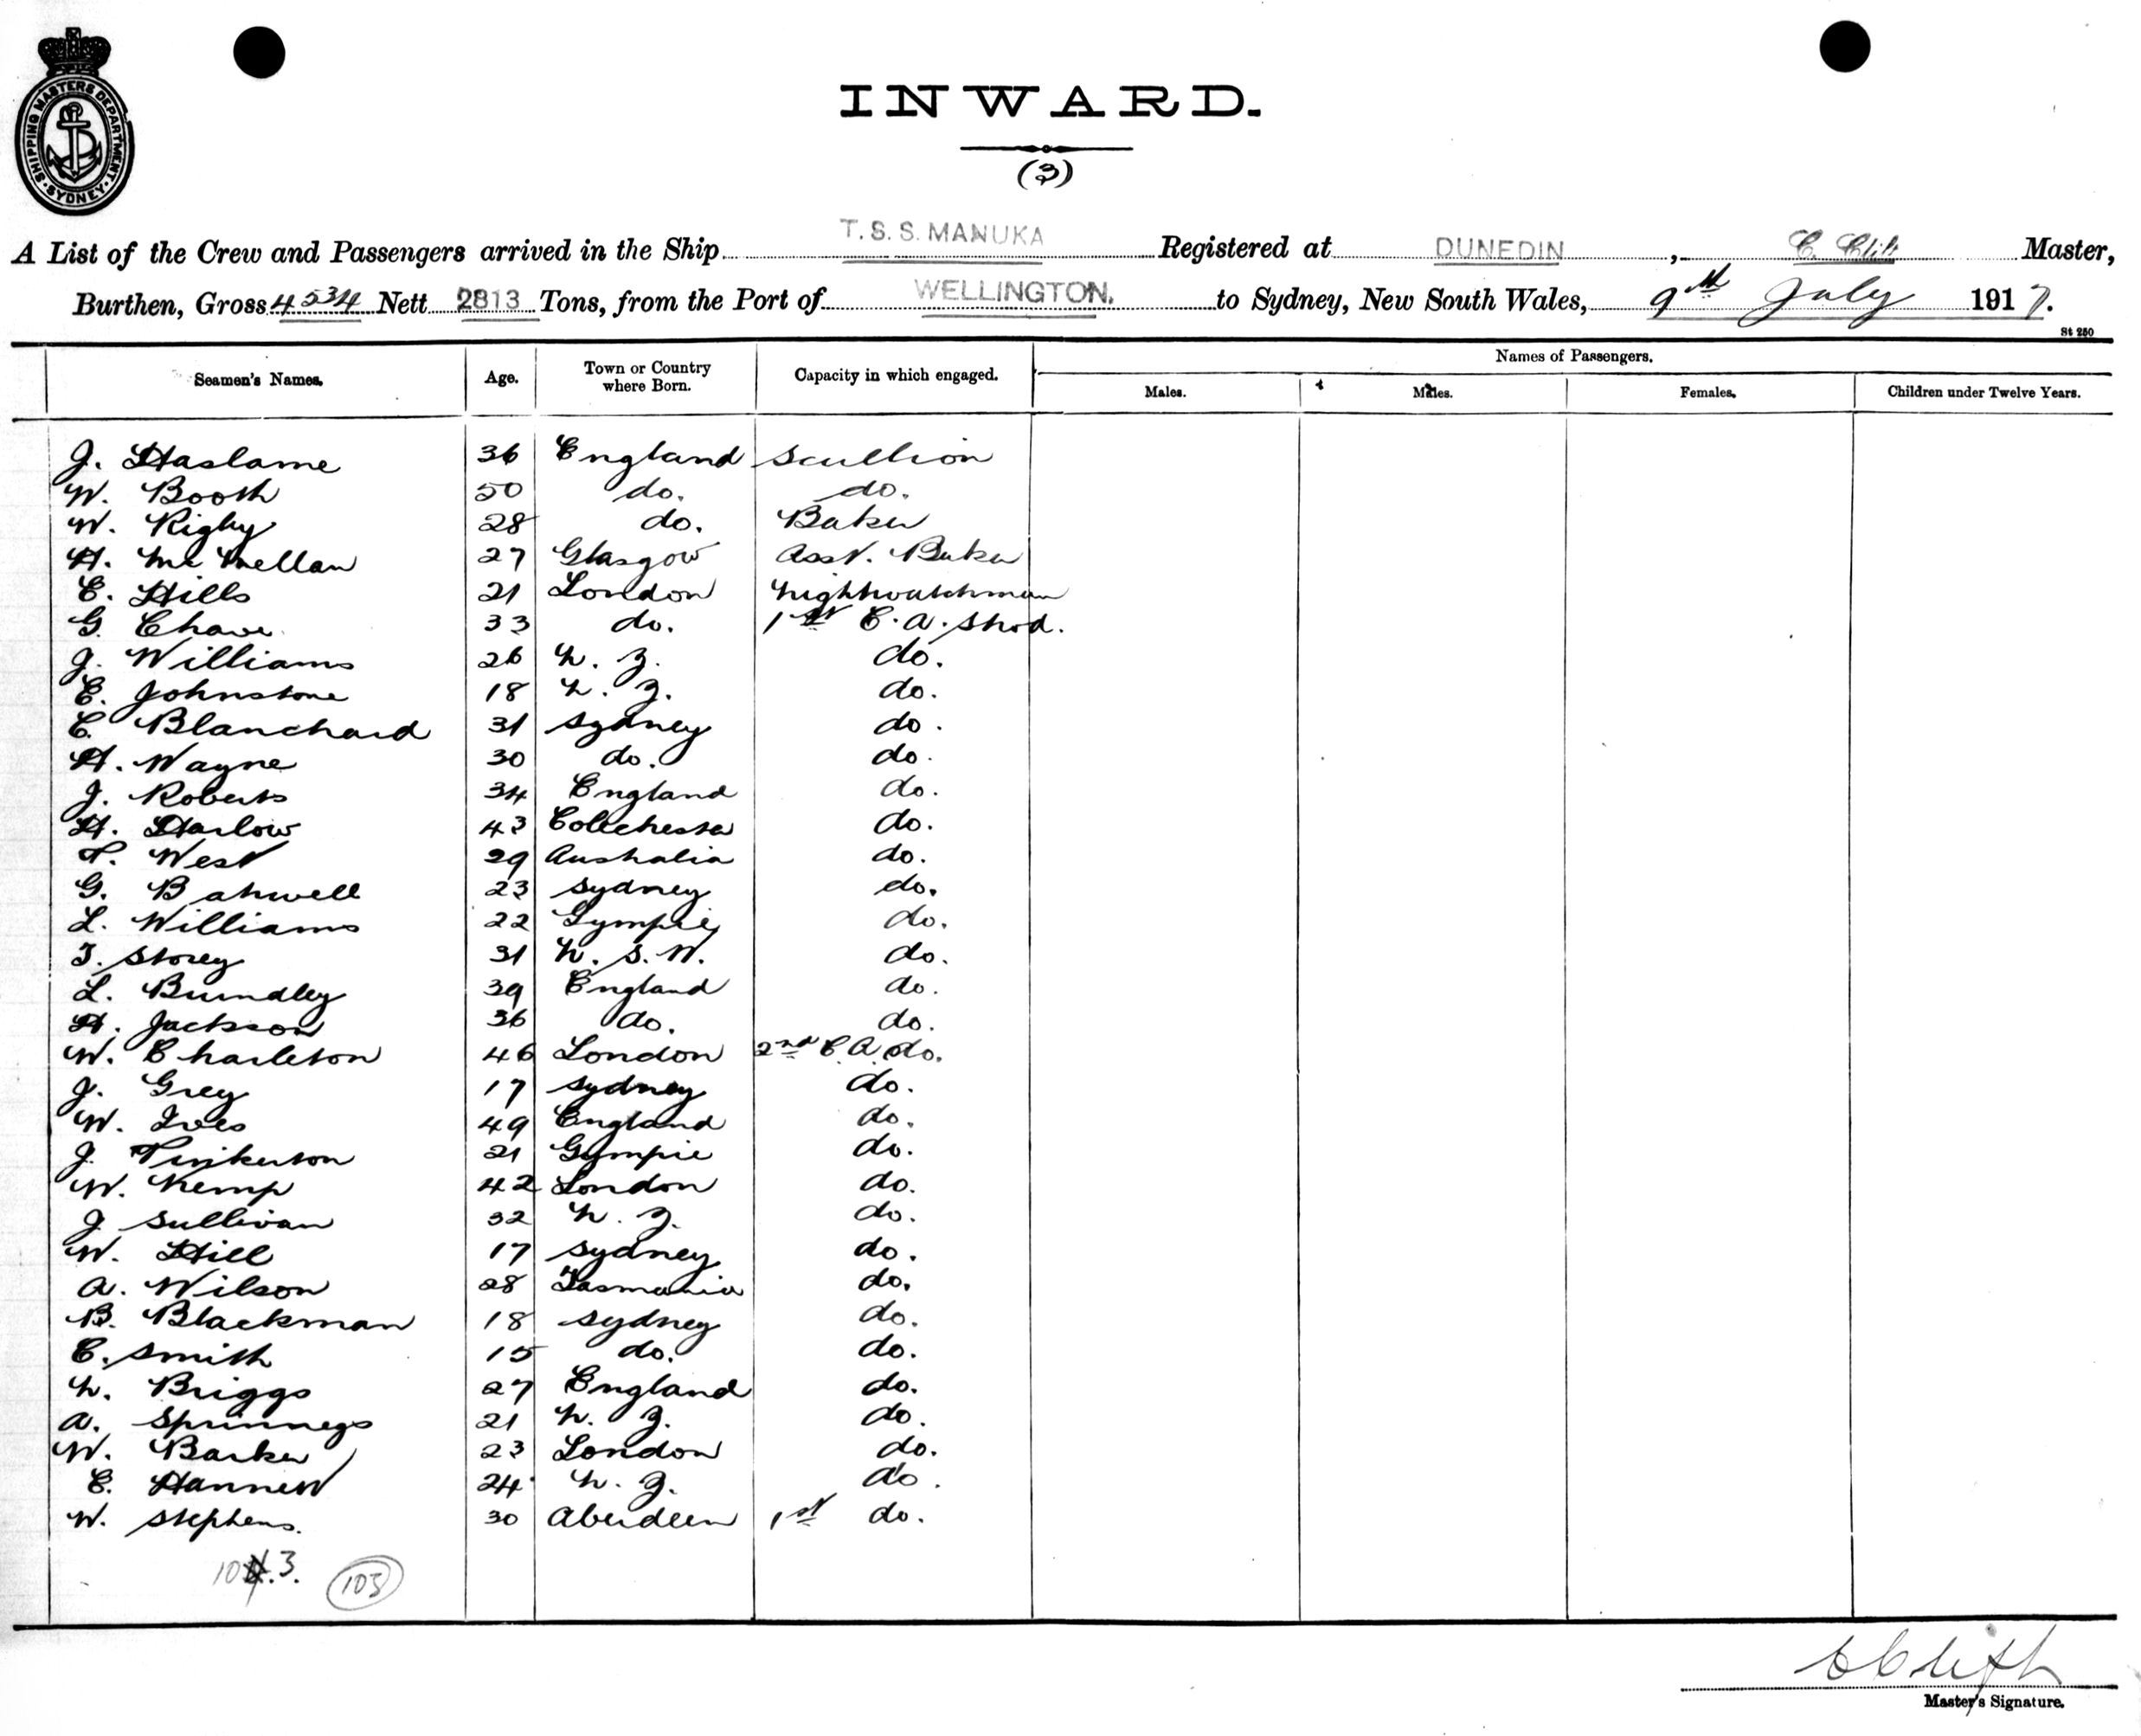 SHIPPING MASTERS DEPARTMENT · SYDNEY ·
INWARD.
(3)
A List of the Crew and Passengers arrived in the Ship T.S.S. MANUKA Registered at DUNEDIN, C. Clift Master,
Burthen, Gross 4534 Nett 2813 Tons, from the Port of WELLINGTON. to Sydney, New South Wales, 9th July 1917.
St 250
Seamen's Names. Age. Town or Country where Born. Capacity in which engaged. Names of Passengers.
Males. Males. Females. Children under Twelve Years.
J. Haslame 36 England Scullion
W. Booth 50 do. do.
W. Rigby 28 do. Baker
H. Mc Mellan 27 Glasgow Asst. Baker
E. Hills 21 London Nightwatchman
G. Chave 33 do. 1st C. A. Stwd.
J. Williams 26 N. Z. do.
E. Johnstone 18 N. Z. do.
C. Blanchard 31 Sydney do.
H. Wayne 30 do. do.
J. Roberts 34 England do.
H. Harlow 43 Colechester do.
P. West 29 Australia do.
G. Bahwell 23 Sydney do.
L. Williams 22 Gympie do.
T. Storey 31 N. S. W. do.
L. Brindley 39 England do.
H. Jackson 36 do. do.
W. Charleton 46 London 2nd C. A. do.
J. Grey 17 Sydney do.
W. Ives 49 England do.
J. Pinkerton 21 Gympie do.
W. Kemp 42 London do.
J Sullivan 32 N. Z. do.
W. Hill 17 Sydney do.
A. Wilson 28 Tasmania do.
B. Blackman 18 Sydney do.
C. Smith 15 do. do.
N. Briggs 27 England do.
A. Spinneys 21 N. Z. do.
W. Barker 23 London do.
E. Hannett 24 N. Z. do.
W. Stephens. 30 Aberdeen 1st do.
103. 103
C Clift
Master's Signature.